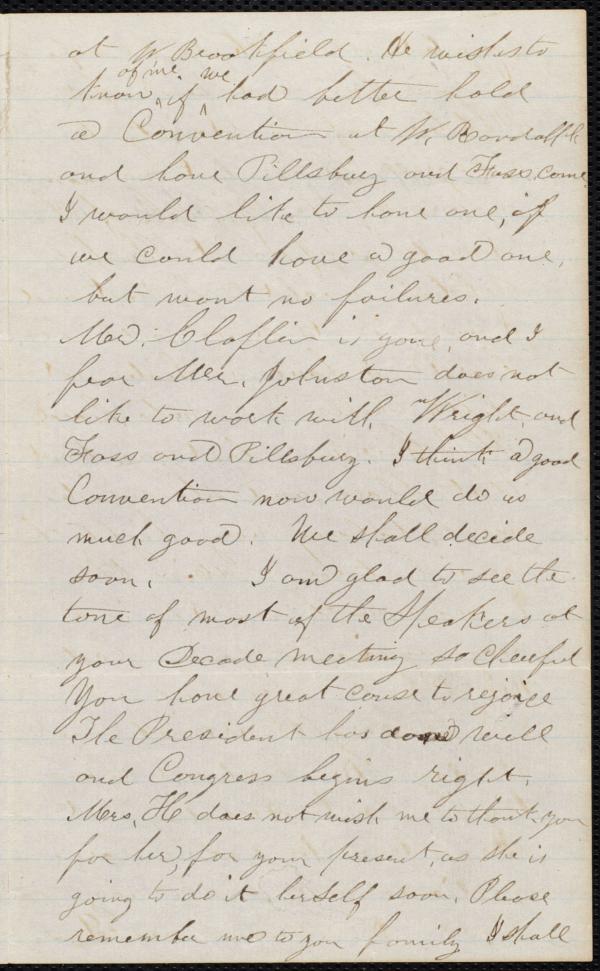 at W Brookfield. He wishes to
know of me if we had better hold
a Convention at W. Randolph
and have Pillsbury and Foss come.
I would like to have one, if
we could have a good one,
but want no failures.
Mr. Claflin is gone, and I
fear Mr. Johnston does not
like to work with Wright, and
Foss and Pillsbury. I think a good
Convention now would do us
much good. We shall decide
soon. I am glad to see the
tone of most of the Speakers at
your Decade meeting so cheerful
You have great cause to rejoice
The President has done well
and Congress begins right.
Mrs. H does not wish me to thank you
for her, for your present, as she is
going to do it herself soon. Please
remember me to you family I shall